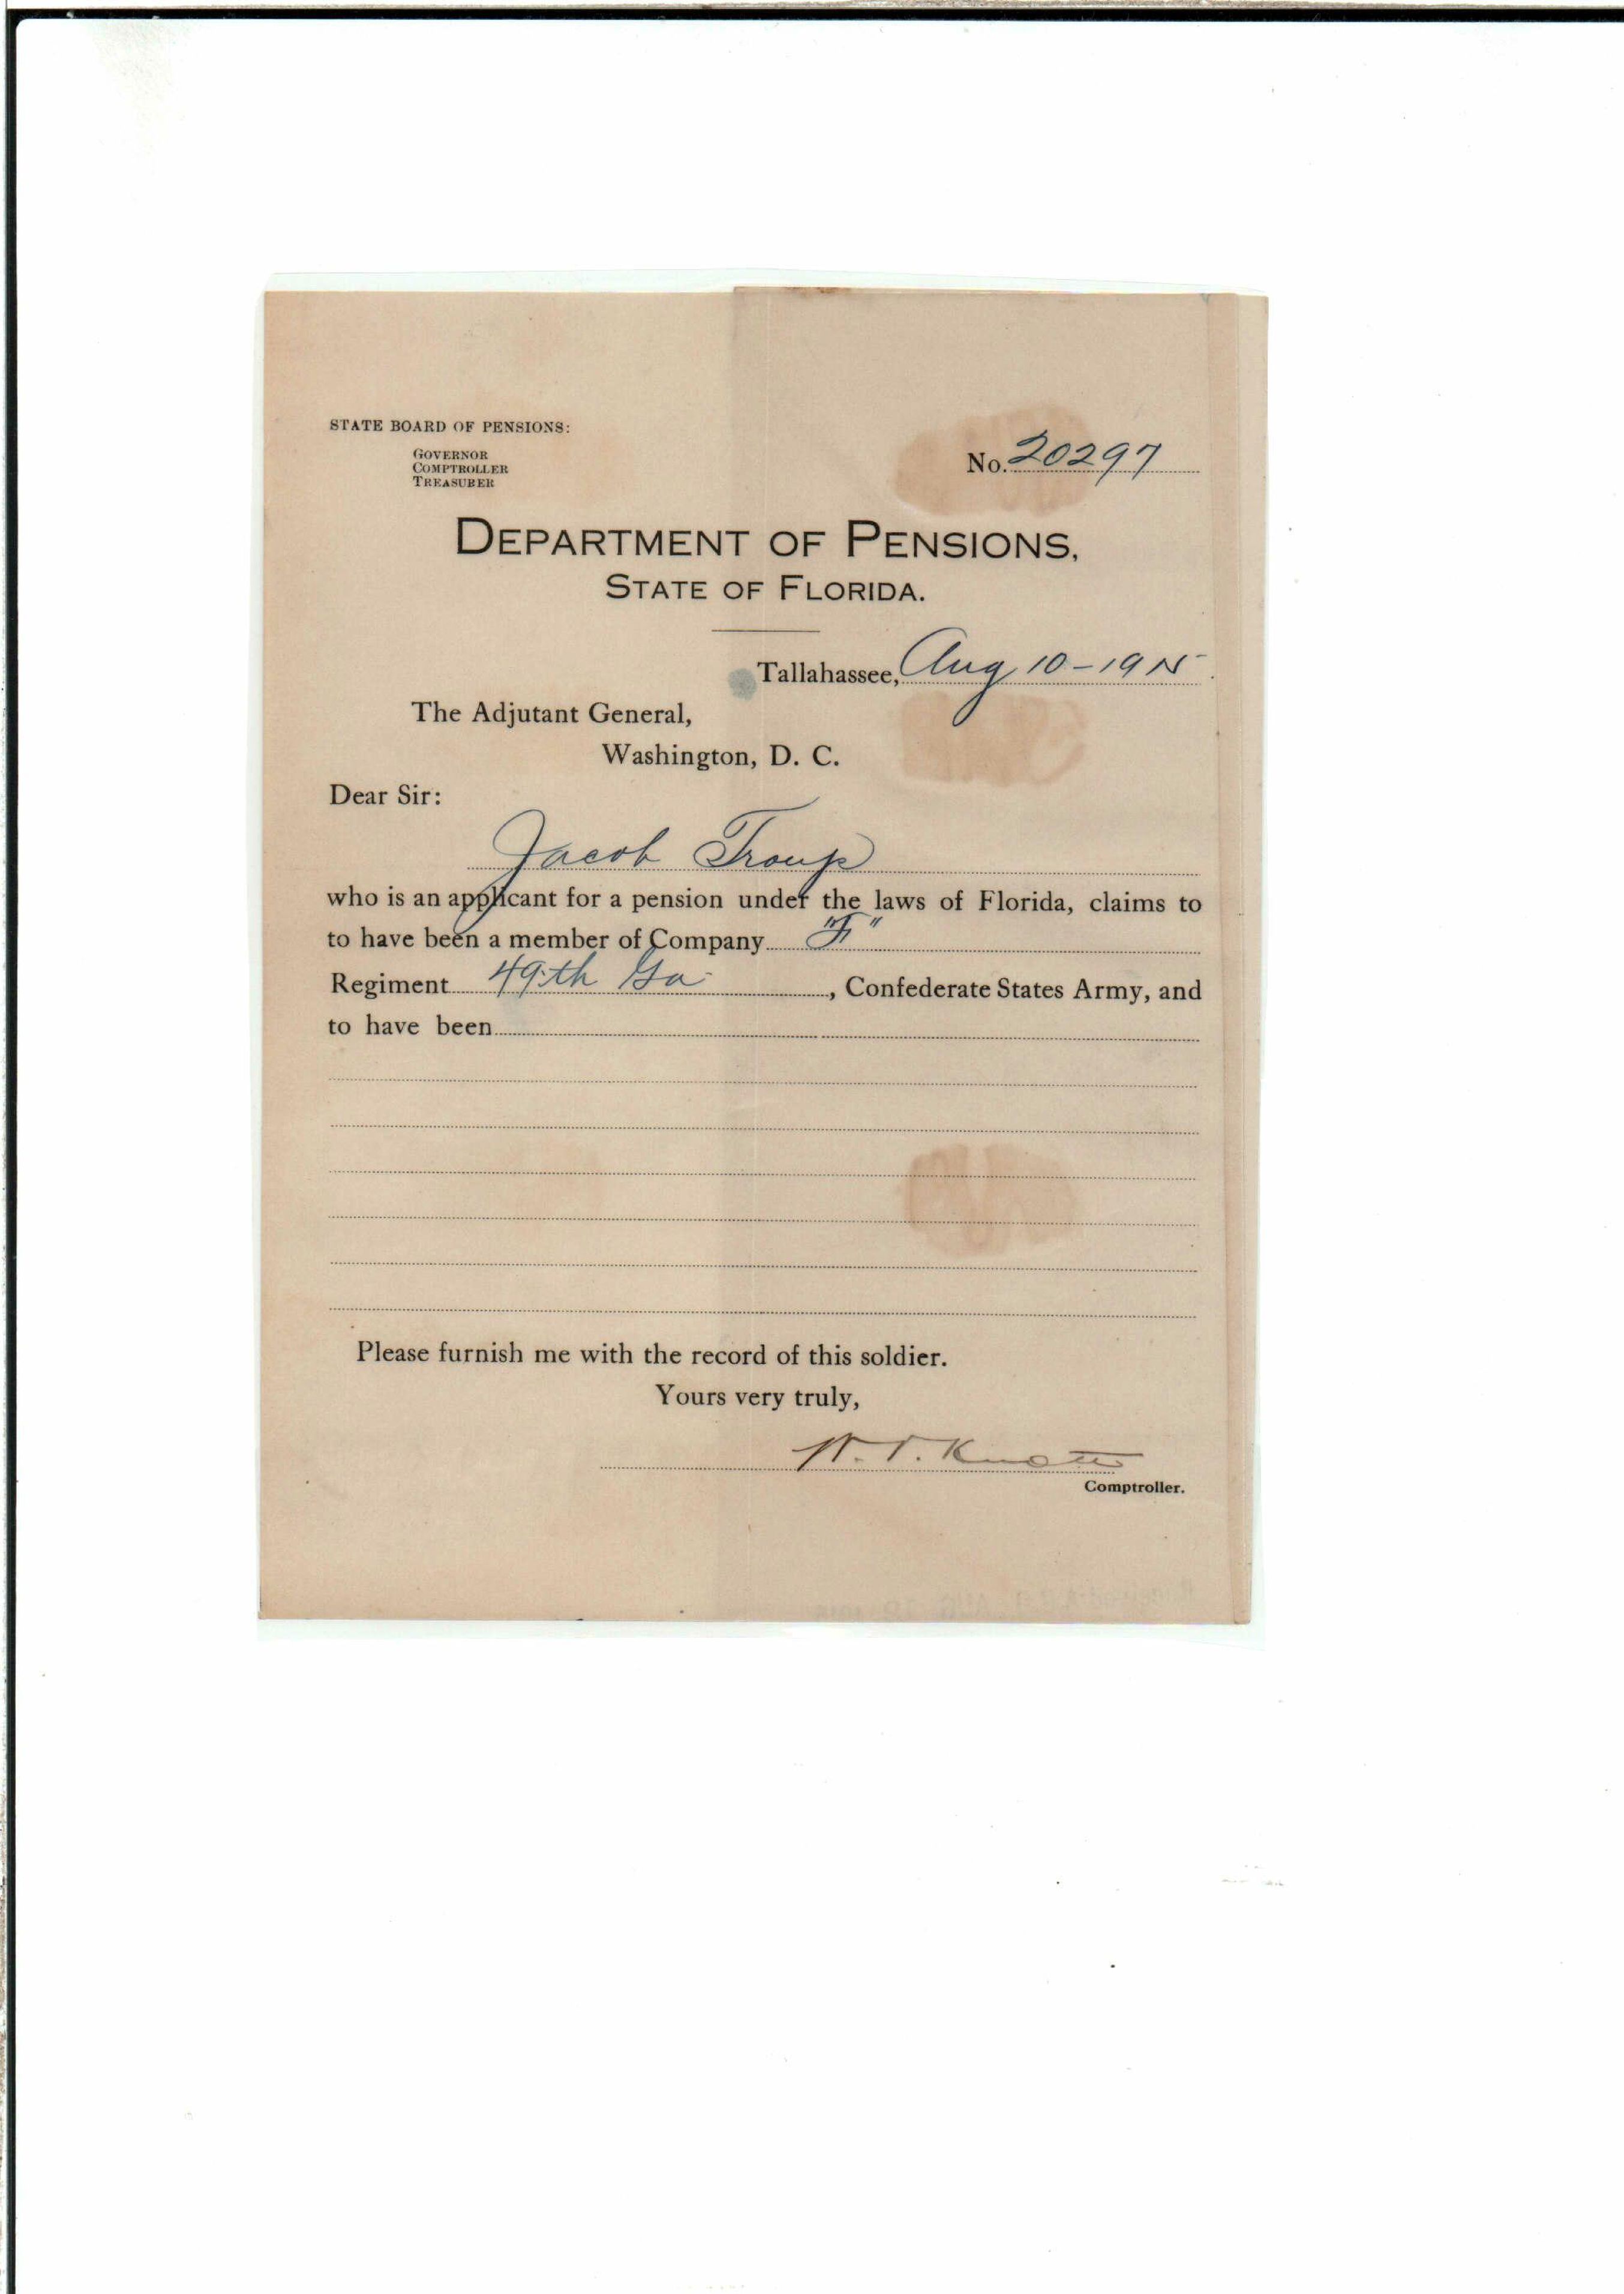 STATE BOARD OF PENSIONS:
GOVERNOR
COMPTROLLER
TREASURER
No. 20297
DEPARTMENT OF PENSIONS,
STATE OF FLORIDA.
Tallahassee, Aug 10-1915
The Adjutant General,
Washington, D. C.
Dear Sir:
Jacob Troup
who is an applicant for a pension under the laws of Florida, claims to
to have been a member of Company "F"
Regiment 49th Ga, Confederate States Army, and
to have been
Please furnish me with the record of this soldier.
Yours very truly,
W. V. Knott
Comptroller.